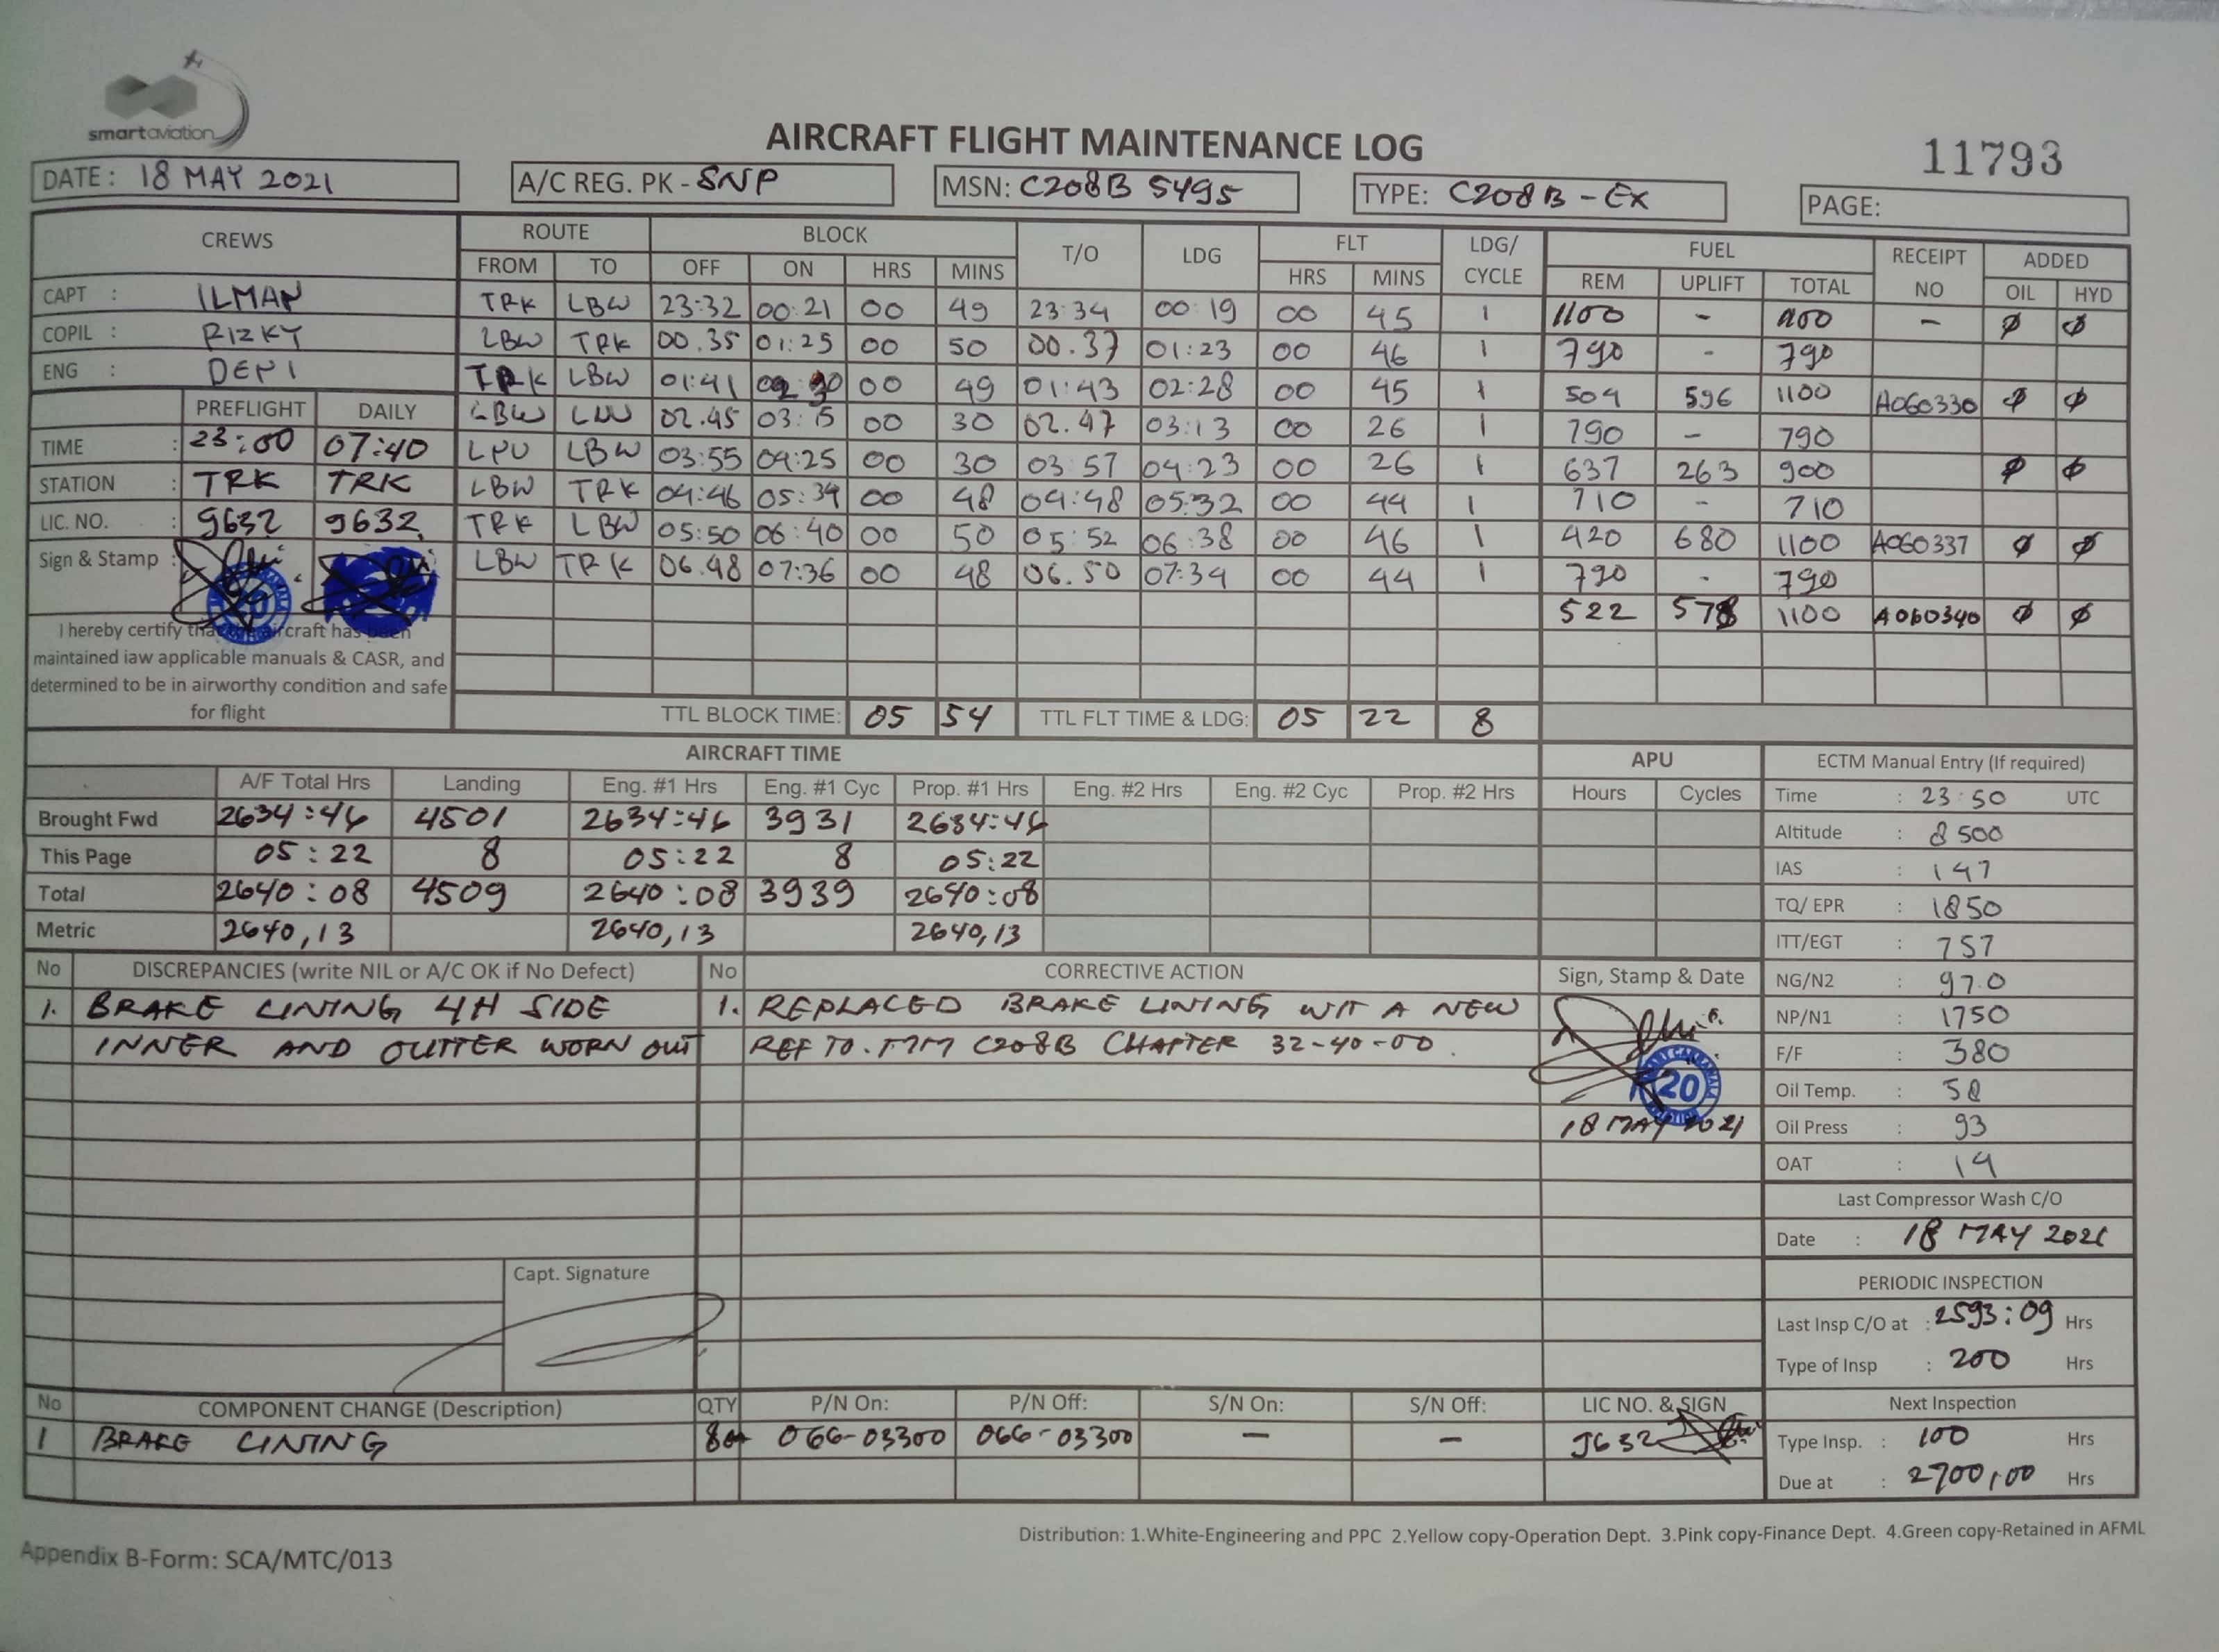 smartaviation
AIRCRAFT FLIGHT MAINTENANCE LOG
11793
DATE: 18 MAY 2021 A/C REG. PK - SNP MSN: C208B 5495 TYPE: C208B - EX PAGE:
CREWS ROUTE BLOCK T/O LDG FLT LDG/ CYCLE FUEL RECEIPT NO ADDED
FROM TO OFF ON HRS MINS HRS MINS REM UPLIFT TOTAL OIL HYD
CAPT : ILMAN TRK LBW 23:32 00:21 00 49 23:34 00:19 00 45 1 1100 - 1100 - ϕ ϕ
COPIL : RIZKY LBW TRK 00.35 01:25 00 50 00.37 01:23 00 46 1 790 - 790
ENG : DENI TRK LBW 01:41 02:30 00 49 01:43 02:28 00 45 1 504 596 1100 A060330 ϕ ϕ
PREFLIGHT DAILY LBW LPU 02.45 03:15 00 30 02.47 03:13 00 26 1 790 - 790
TIME : 23:00 07:40 LPU LBW 03:55 04:25 00 30 03:57 04:23 00 26 1 637 263 900 ϕ ϕ
STATION : TRK TRK LBW TRK 04:46 05:34 00 48 04:48 05:32 00 44 1 710 - 710
LIC. NO. : 9632 9632 TRK LBW 05:50 06:40 00 50 05:52 06:38 00 46 1 420 680 1100 A060337 ϕ ϕ
Sign & Stamp : LBW TRK 06.48 07:36 00 48 06.50 07:34 00 44 1 790 - 790
522 578 1100 A060340 ϕ ϕ
I hereby certify that the aircraft has been
maintained iaw applicable manuals & CASR, and
determined to be in airworthy condition and safe
for flight
TTL BLOCK TIME: 05 54 TTL FLT TIME & LDG: 05 22 8
AIRCRAFT TIME APU ECTM Manual Entry (If required)
A/F Total Hrs Landing Eng. #1 Hrs Eng. #1 Cyc Prop. #1 Hrs Eng. #2 Hrs Eng. #2 Cyc Prop. #2 Hrs Hours Cycles
Brought Fwd 2634:46 4501 2634:46 3931 2634:46
This Page 05:22 8 05:22 8 05:22
Total 2640:08 4509 2640:08 3939 2640:08
Metric 2640,13 2640,13 2640,13
Time : 23:50 UTC
Altitude : 8500
IAS : 147
TQ/ EPR : 1850
ITT/EGT : 757
NG/N2 : 97.0
NP/N1 : 1750
F/F : 380
Oil Temp. : 58
Oil Press : 93
OAT : 14
Last Compressor Wash C/O
Date : 18 MAY 2021
PERIODIC INSPECTION
Last Insp C/O at : 2593:09 Hrs
Type of Insp : 200 Hrs
Next Inspection
Type Insp. : 100 Hrs
Due at : 2700,00 Hrs
No DISCREPANCIES (write NIL or A/C OK if No Defect) No CORRECTIVE ACTION Sign, Stamp & Date
1. BRAKE LINING LH SIDE 1. REPLACED BRAKE LINING WIT A NEW
INNER AND OUTTER WORN OUT REF TO. MM C208B CHAPTER 32-40-00.
20
18 MAY 2021
Capt. Signature
No COMPONENT CHANGE (Description) QTY P/N On: P/N Off: S/N On: S/N Off: LIC NO. & SIGN
1 BRAKE LINING 066-03300 066-03300 - - 9632
Distribution: 1.White-Engineering and PPC 2.Yellow copy-Operation Dept. 3.Pink copy-Finance Dept. 4.Green copy-Retained in AFML
Appendix B-Form: SCA/MTC/013